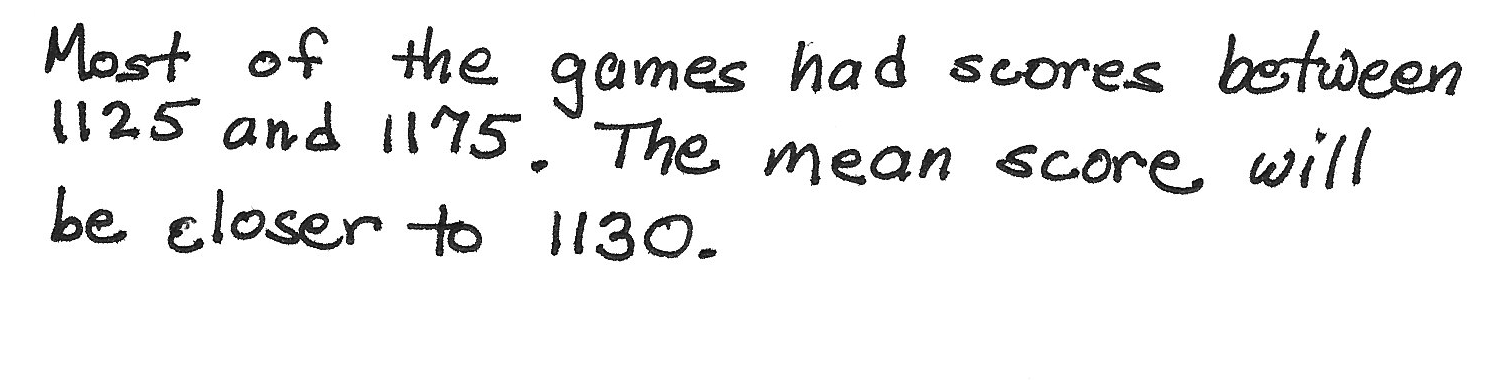 Most of the games had scores between
1125 and 1175. The mean score will
be closer to 1130.